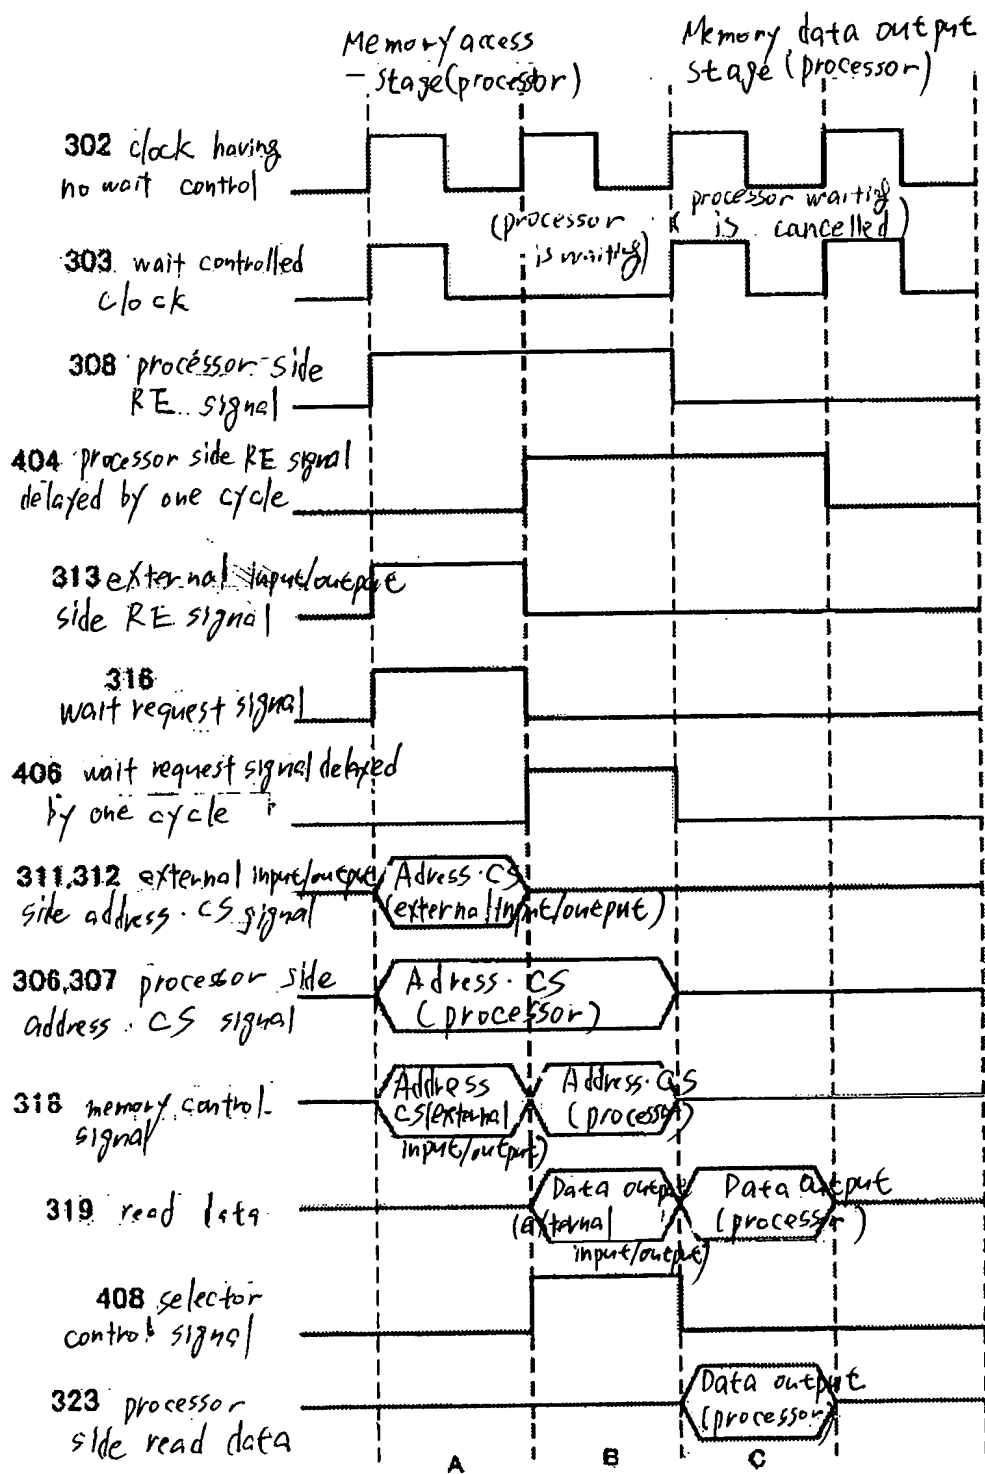 Memory access
stage (processor)
Memory data output
stage (processor)
302 clock having
no wait control
(processor
is waiting)
(processor waiting
is cancelled)
303 wait controlled
clock
308 processor side
RE signal
404 processor side RE signal
delayed by one cycle
313 external input/output
side RE signal
316
wait request signal
406 wait request signal delayed
by one cycle
311,312 external input/output
side address · CS signal
Adress · CS
(external input/output)
306,307 processor side
address · CS signal
Adress · CS
(processor)
318 memory control
signal
Address
CS(external
input/output)
Address · CS
(processor)
319 read data
Data output
(external
input/output)
Data output
(processor)
408 selector
control signal
323 processor
side read data
Data output
(processor)
A B C